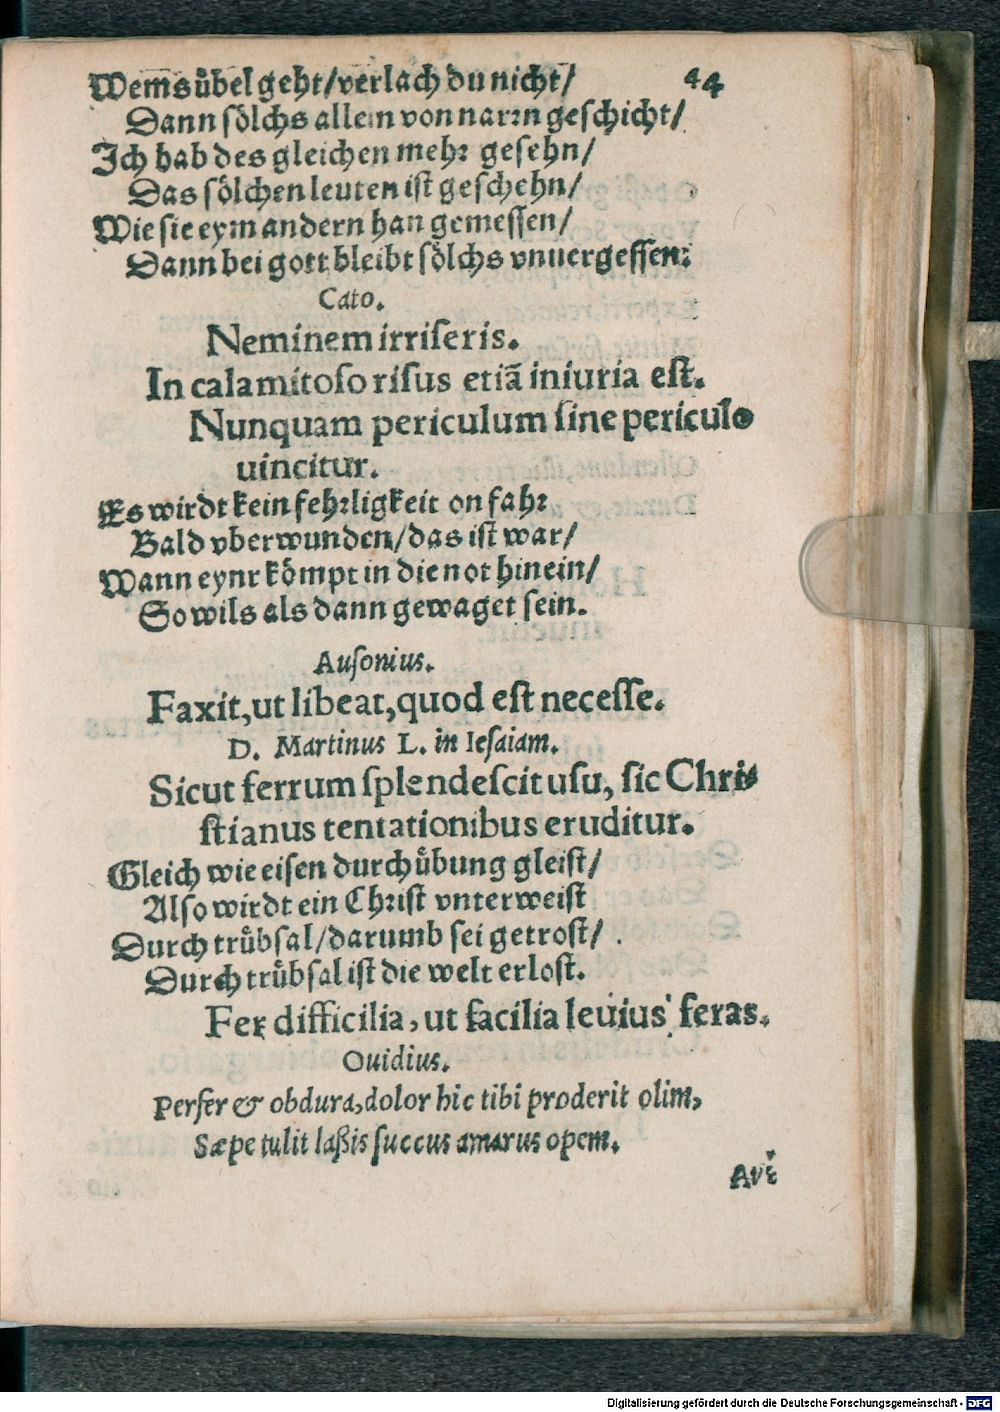 Wems uͤbel geht/verlach du nicht/ 44
Dann soͤlchs allein von narrn geschicht/
Ich hab des gleichen mehr gesehn/
Das soͤlchen leuten ist geschehn/
Wie sie eym andern han gemessen/
Dann bei gott bleibt soͤlchs vnuergessen:
Cato.
Neminem irriseris.
In calamitoso risus etiã iniuria est.
Nunquam periculum sine periculo
uincitur.
Es wirdt kein fehrligkeit on fahr
Bald vberwunden/das ist war/
Wann eynr koͤmpt in die not hinein/
So wils als dann gewaget sein.
Ausonius.
Faxit, ut libeat, quod est necesse.
D. Martinus L. in Iesaiam.
Sicut ferrum splendescit usu, sic Chri-
stianus tentationibus eruditur.
Gleich wie eisen durch uͤbung gleist/
Also wirdt ein Christ vnterweist
Durch truͤbsal/darumb sei getrost/
Durch truͤbsal ist die welt erlost.
Fer difficilia, ut facilia leuius feras.
Ouidius.
Perfer & obdura, dolor hic tibi proderit olim,
Sæpe tulit laßis succus amarus opem.
Digitalisierung gefördert durch die Deutsche Forschungsgemeinschaft - DFG